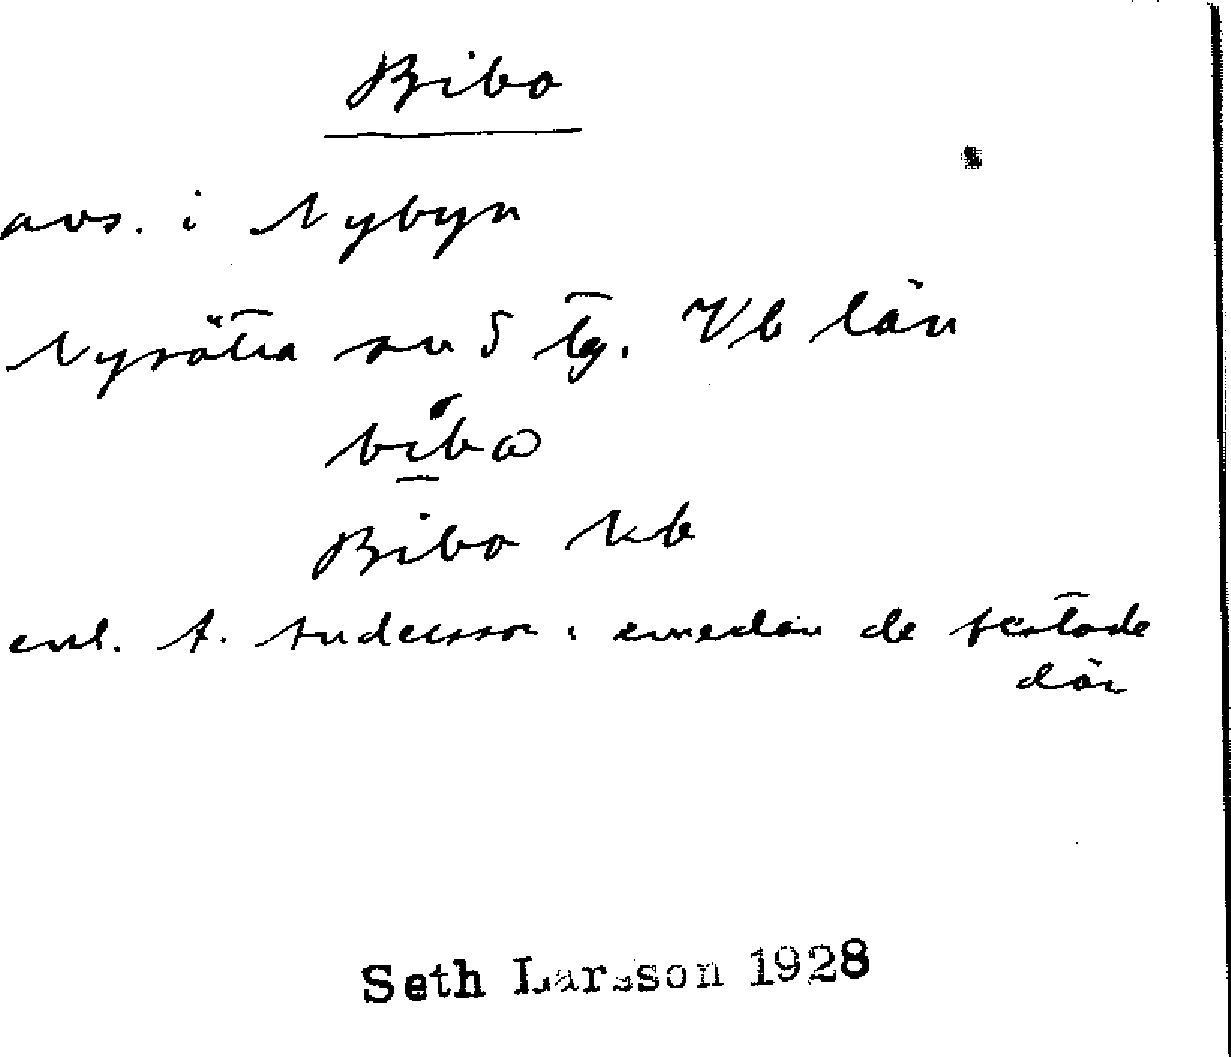 Bibo
avs. i Nybyn
Nysätra sn S tg. Vb län
biba
Bibo kb
enl. A. Andersson: emedan de festade
där
Seth Larsson 1928